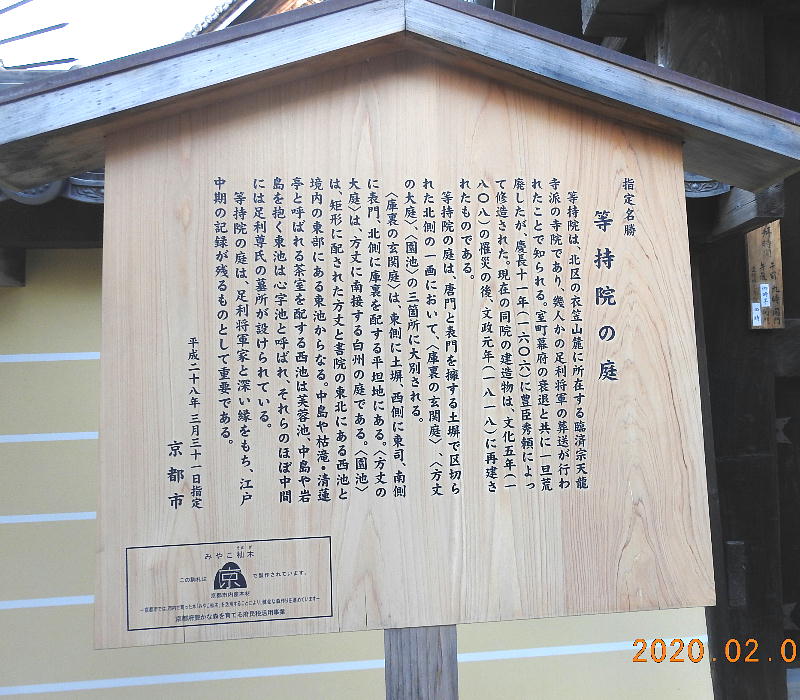 指定名勝
等持院の庭
等持院は、北区の衣笠山麓に所在する臨済宗天龍
寺派の寺院であり、幾人かの足利将軍の葬送が行わ
れたことで知られる。室町幕府の衰退と共に一旦荒
廃したが、慶長十一年(一六〇六)に豊臣秀頼によっ
て修造された。現在の同院の建造物は、文化五年(一
八〇八)の罹災の後、文政元年(一八一八)に再建さ
れたものである。
等持院の庭は、唐門と表門を擁する土塀で区切ら
れた北側の一画において、〈庫裏の玄関庭〉、〈方丈
の大庭〉、〈園池〉の三箇所に大別される。
〈庫裏の玄関庭〉は、東側に土塀、西側に東司、南側
に表門、北側に庫裏を配する平坦地にある。〈方丈の
大庭〉は、方丈に南接する白州の庭である。〈園池〉
は、矩形に配された方丈と書院の東北にある西池と
境内の東部にある東池からなる。中島や枯滝・清蓮
亭と呼ばれる茶室を配する西池は芙蓉池、中島や岩
島を抱く東池は心字池と呼ばれ、それらのほぼ中間
には足利尊氏の墓所が設けられている。
等持院の庭は、足利将軍家と深い縁をもち、江戸
中期の記録が残るものとして重要である。
平成二十八年三月三十一日指定
京都市
みやこ杣木
この駒札は
京
で製作されています。
京都市内産木材
京都府豊かな森を育てる府民税活用事業
2020.02.0